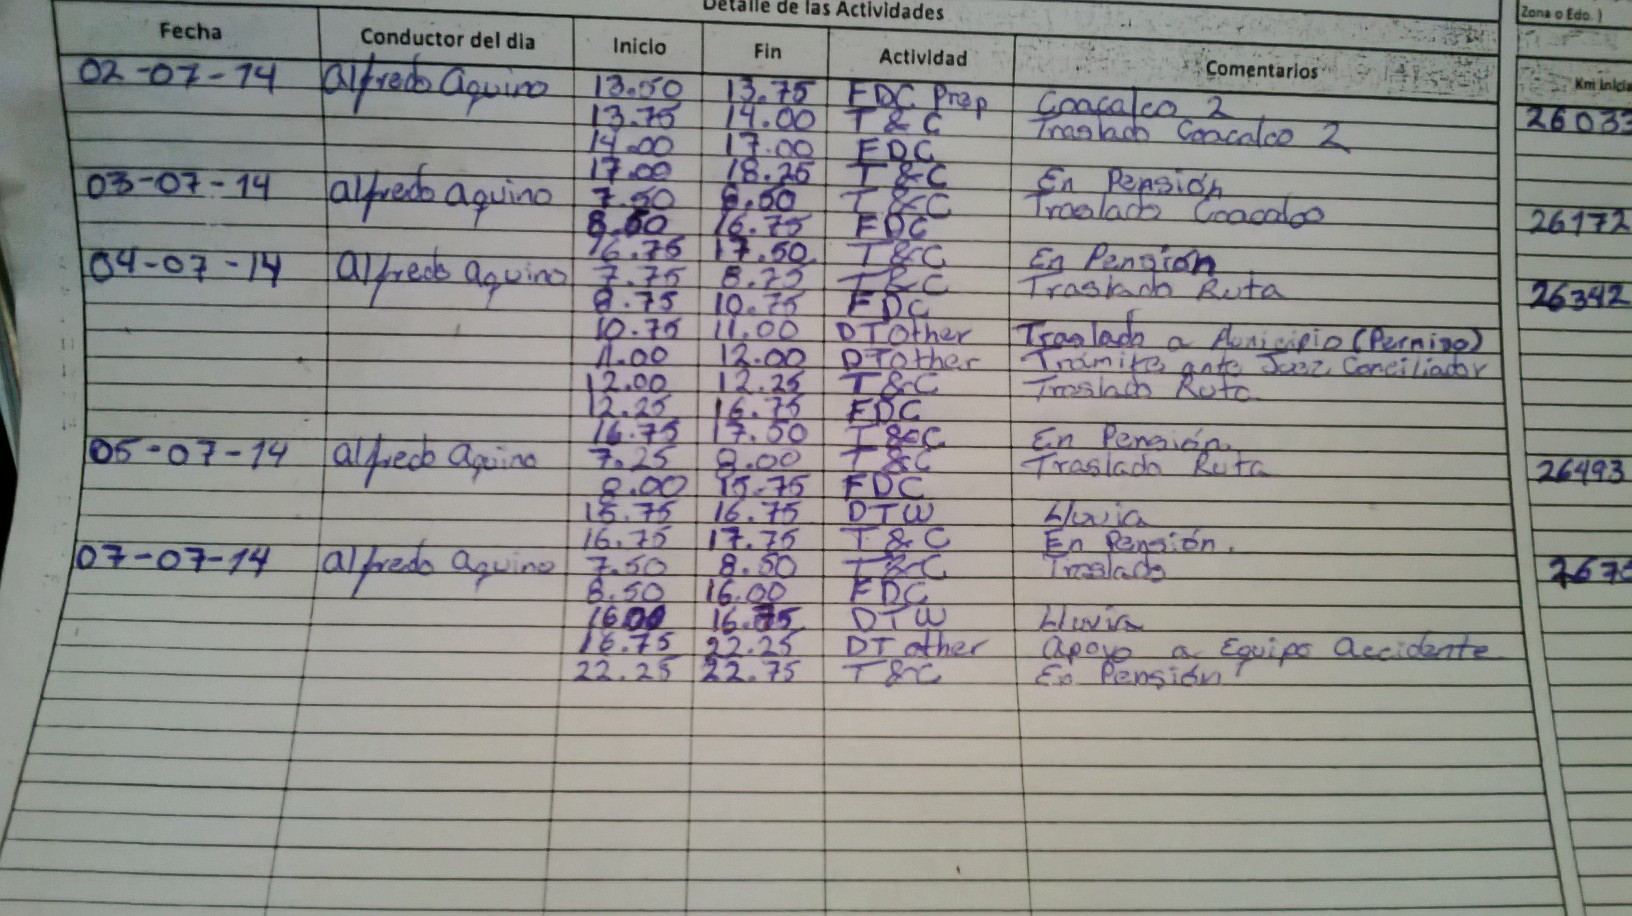 Detalle de las Actividades
Zona o Edo. )
Fecha Conductor del dia Inicio Fin Actividad Comentarios Km Inicia
02-07-14 Alfredo Aquino 13.50 13.75 FDC Prep Coacalco 2 26033
13.75 14.00 T & C Traslado Coacalco 2
14.00 17.00 FDC
17.00 18.25 T & C En Pensión
03-07-14 Alfredo Aquino 7.50 8.50 T & C Traslado Coacalco 26172
8.50 16.75 FDC
16.75 17.50 T & C En Pensión
04-07-14 Alfredo Aquino 7.75 8.75 T & C Traslado Ruta 26342
8.75 10.75 FDC
10.75 11.00 DT Other Traslado a Municipio (Permiso)
11.00 12.00 DT Other Tramite ante Juez Conciliador
12.00 12.25 T & C Traslado Ruta
12.25 16.75 FDC
16.75 17.50 T & C En Pensión.
05-07-14 Alfredo Aquino 7.25 8.00 T & C Traslado Ruta 26493
8.00 15.75 FDC
15.75 16.75 DTW Lluvia
16.75 17.75 T & C En Pensión.
07-07-14 Alfredo Aquino 7.50 8.50 T & C Traslado
8.50 16.00 FDC
16.00 16.75 DTW Lluvia
16.75 22.25 DT other Apoyo a Equipo Accidente
22.25 22.75 T & C En Pensión